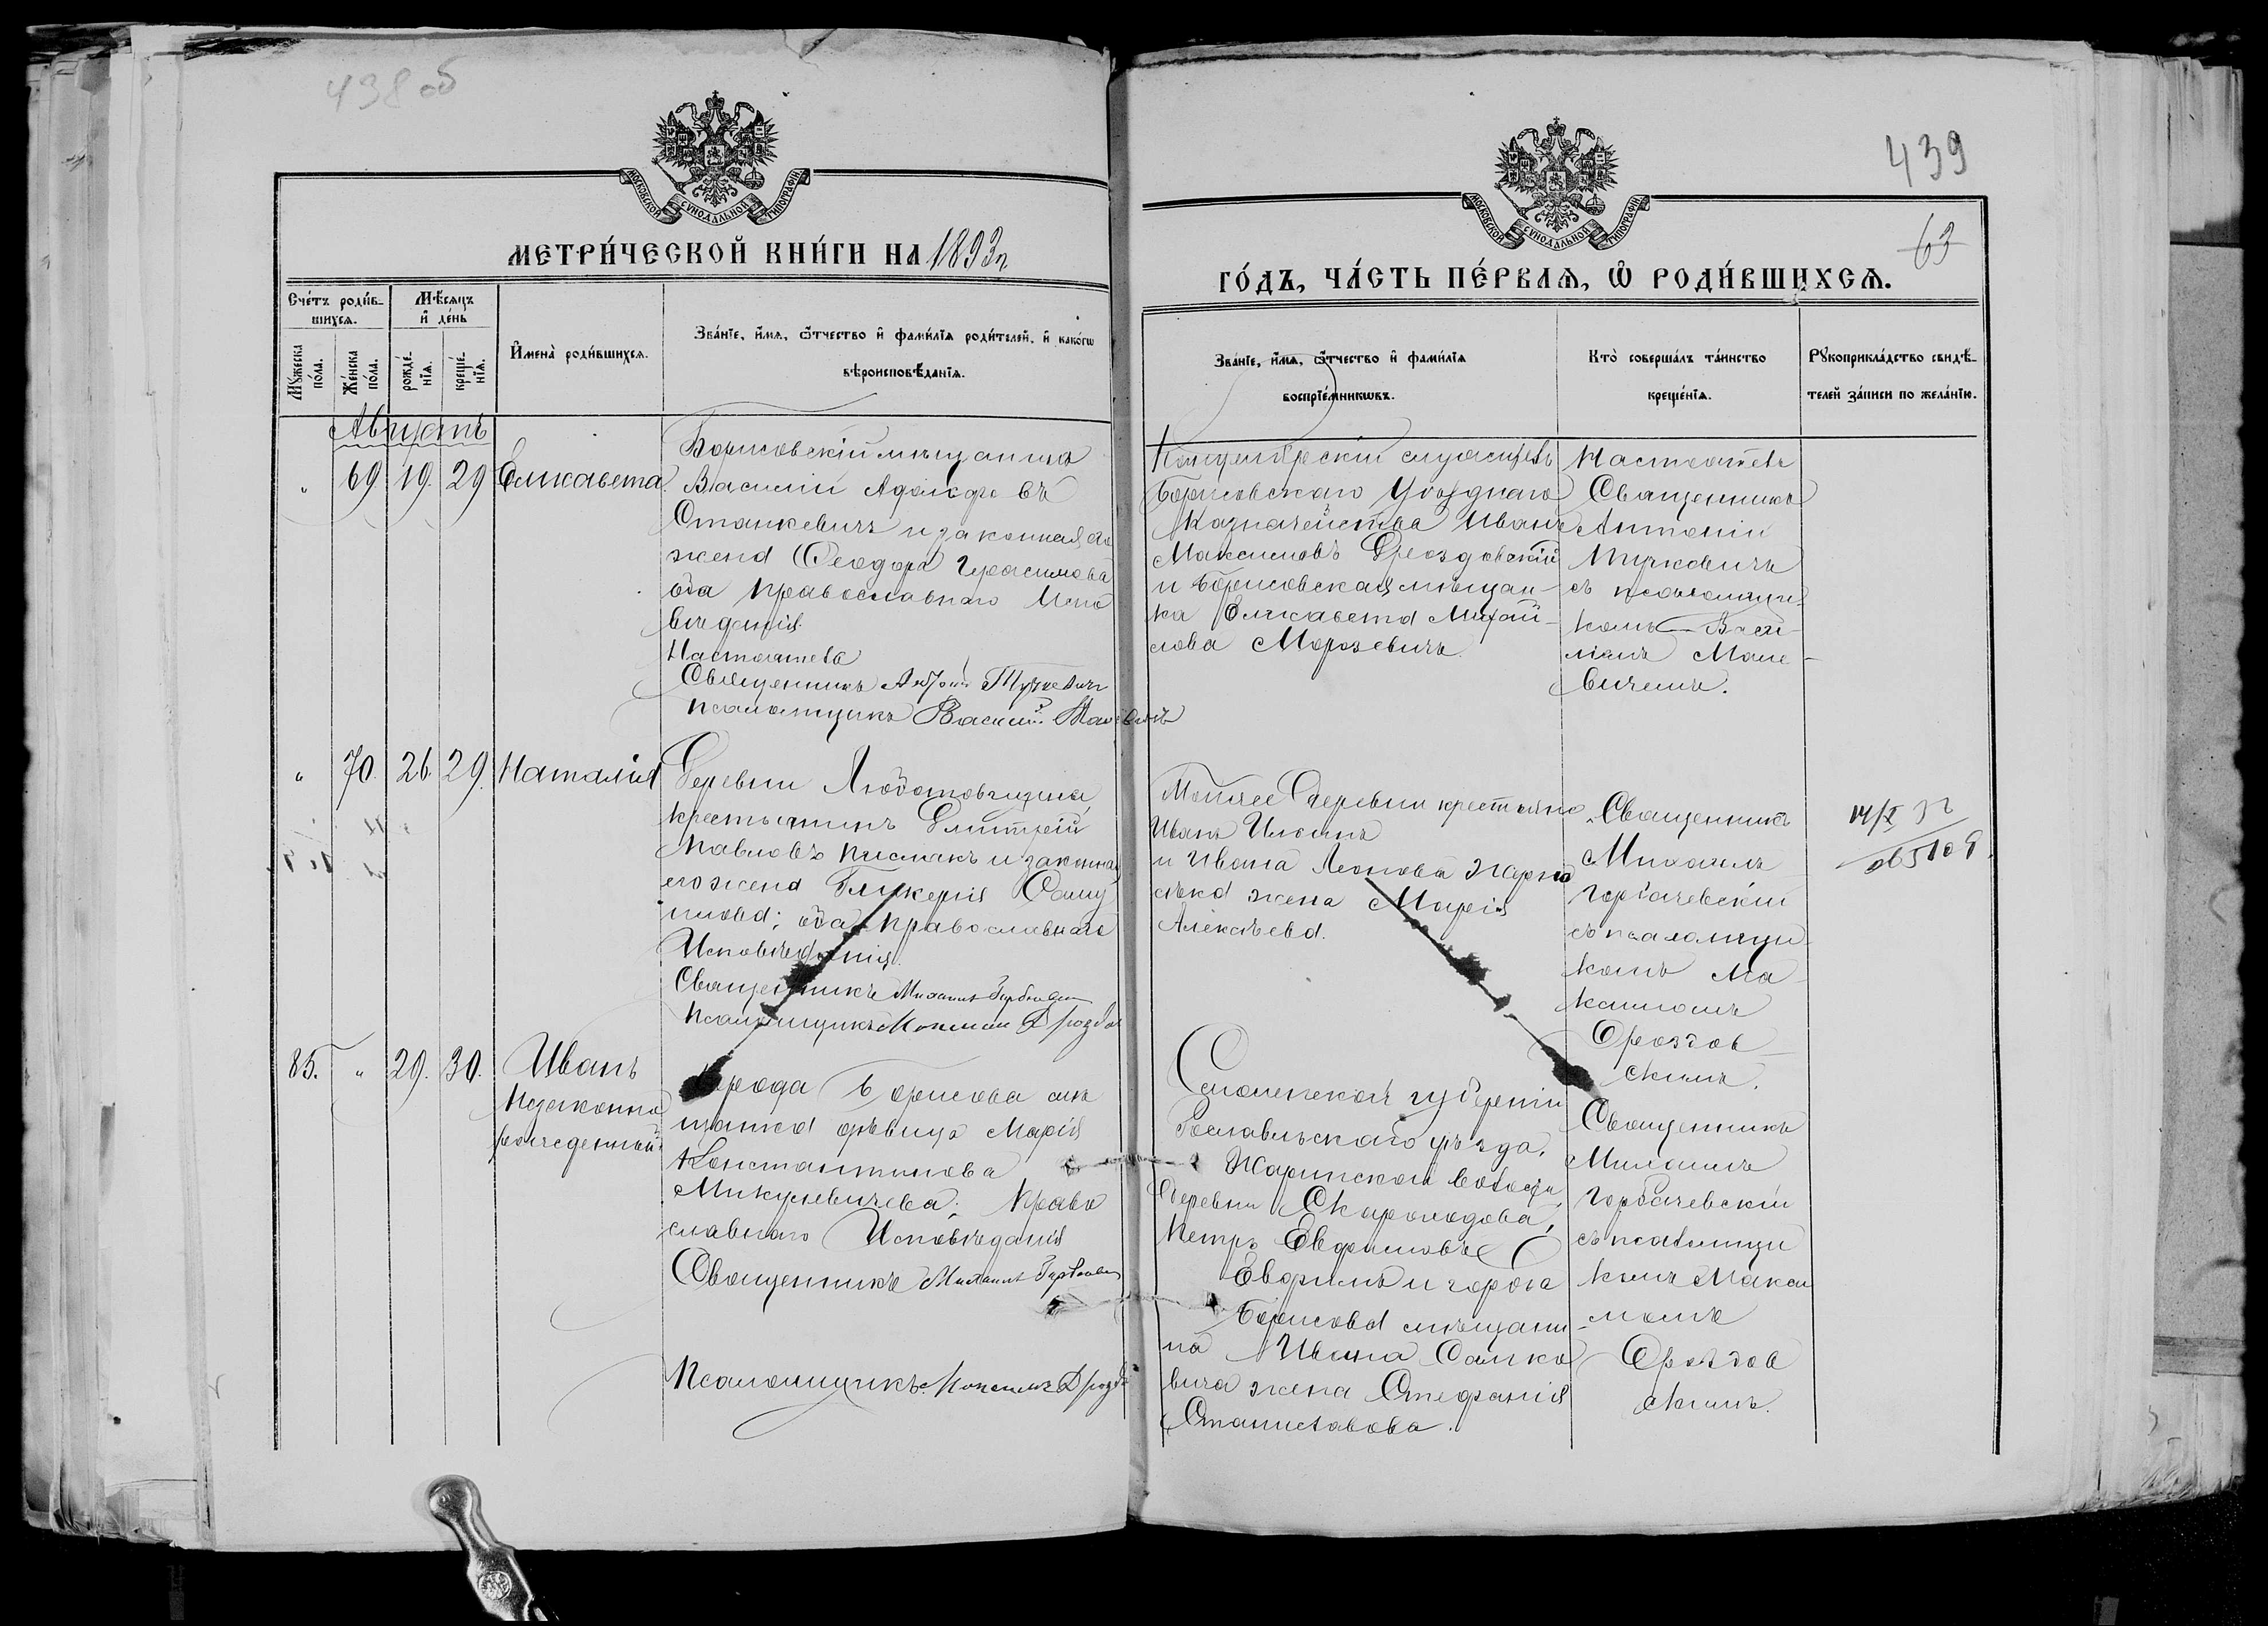 438 об
МОСКОВСКОЙ СѴНОДАЛЬНОЙ ТИПОГРАФІИ
МЕТРИ́ЧЕСКОЙ КНИ́ГИ НА 1893 г.
Сче́тъ роди́вшихся.
Мѣ́сяцъ и҆ де́нь
Мꙋ́жеска по́ла.
Же́нска по́ла.
рожде́нїя.
креще́нїя.
И҆мена̀ роди́вшихся.
Зва́нїе, и҆́мя, ѻ҆́тчество и҆ фами́лїя роди́телей, и҆ како́гѡ
вѣроисповѣ́данїя.
Августъ
„ 69 19. 29 Елисавета.
Борисовскій мѣщанинъ
Василій Адольфовъ
Станкевичъ и законная его
жена Ѳеодора Герасимова
оба православнаго Испо
вѣданія.
Настоятель
Священникъ Антоній
Псаломщикъ Василій
„ 70. 26. 29. Наталія
Деревни Любатовщина,
крестьянинъ Дмитрій
Павловъ Писпакъ и законная
его жена Гликерія Саму
илова; оба православнаго
Исповѣданія.
Священникъ Михаилъ
Псаломщикъ Максимъ Дрозд
85. „ 29. 30. Иванъ
Незаконно
рожденный
Города Борисова мѣ
щанка дѣвица Марія
Константинова
Микулевичева; Право
славнаго Исповѣданія
Священникъ Михаилъ
Псаломщикъ Максимъ Дрозд
439
63
МОСКОВСКОЙ СѴНОДАЛЬНОЙ ТИПОГРАФІИ
ГО́ДЪ, ЧА́СТЬ ПЕ́РВАЯ, Ѡ҆ РОДИ́ВШИХСЯ.
Зва́нїе, и҆́мя, ѻ҆́тчество и҆ фами́лїя
воспрїе́мникѡвъ.
Кто̀ соверша́лъ та́инство
креще́нїя.
Рꙋкоприкла́дство свидѣ́телей за́писи по жела́нїю.
Канцелярскій служитель
Борисовскаго Уѣзднаго
Казначейства Иванъ
Максимовъ Дроздовскій
и Борисовская мѣщан-
ка Елисавета Михай-
лова Морозевичъ.
Настоятель
Священникъ
Антоній
съ псаломщи-
комъ Васи-
ліемъ Маце-
вичемъ.
Тойже деревни крестьяне
Иванъ Илюинъ
и Ивана Леонова Жарно
сѣка жена Марія
Алексѣева.
Священникъ
Михаилъ
Горбачевскій
съ псаломщи
комъ Ма
ксимомъ
Дроздов-
скимъ.
Смоленской губерніи
Рославльскаго уѣзда,
Жаринской волости
деревни Скороходова,
Петръ Евфимовъ
Евфимъ и города
Борисова мѣщани-
на Ивана Санко
вича жена Стефанія
Станиславова.
Священникъ
Михаилъ
Горбачевскій
съ псаломщи
комъ Макси
момъ
Дроздов
скимъ.